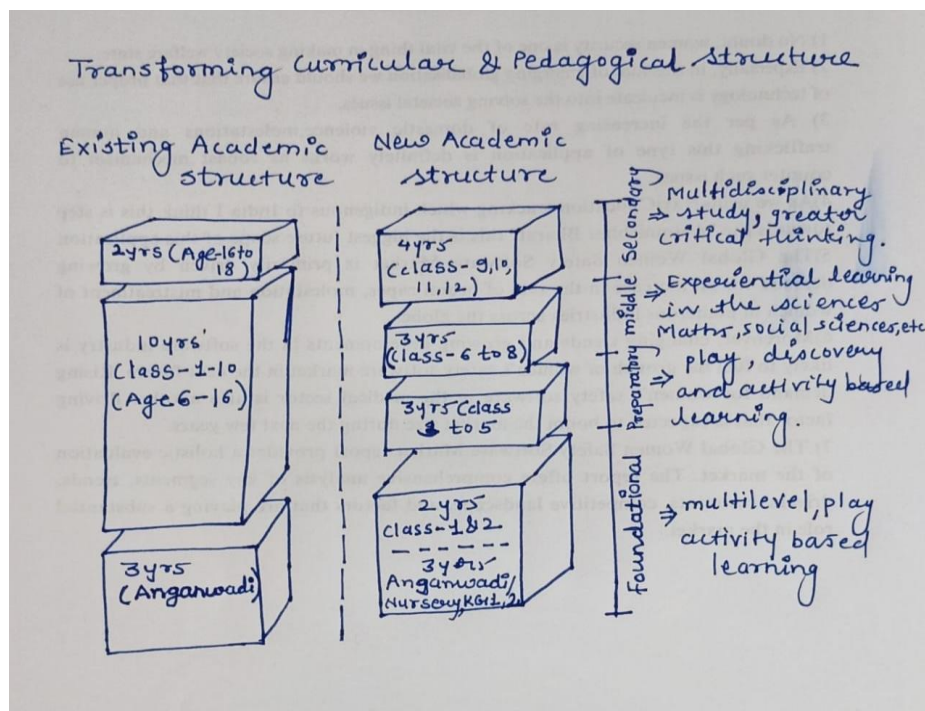 Transforming Curricular & Pedagogical structure
Existing Academic
structure
2yrs (Age-16to
18)
10yrs
(class-1-10
(Age 6-16)
3yrs
(Anganwadi)
New Academic
structure
4yrs
(class-9,10,
11,12)
3yrs
(class-6 to 8)
3yrs (class
3 to 5
2yrs
class-1&2
3years
Anganwadi/
Nursery,KG1,2
Secondary
middle
Preparatory
foundational
Multidisciplinary
⇒ study, greator
critical thinking.
⇒ Experiential learning
in the sciences
Maths, social sciences, etc
play, discovery
⇒ and activity based
learning
⇒ multilevel, play
activity based
learning